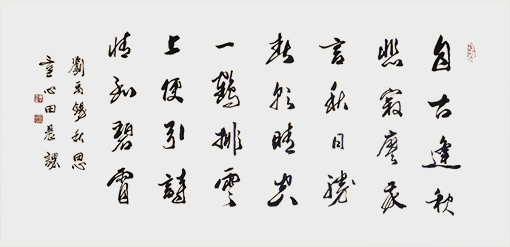 自古逢秋
悲寂寥我
言秋日勝
春朝晴空
一鶴排雲
上便引詩
情到碧霄
劉禹錫秋思
童心田晨課